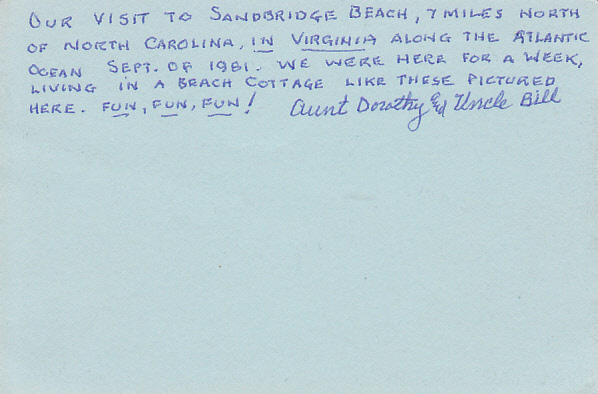 OUR VISIT TO SANDBRIDGE BEACH, 7 MILES NORTH
OF NORTH CAROLINA, IN VIRGINIA ALONG THE ATLANTIC
OCEAN SEPT. OF 1981. WE WERE HERE FOR A WEEK,
LIVING IN A BEACH COTTAGE LIKE THESE PICTURED
HERE. FUN, FUN, FUN! Aunt Dorothy and Uncle Bill